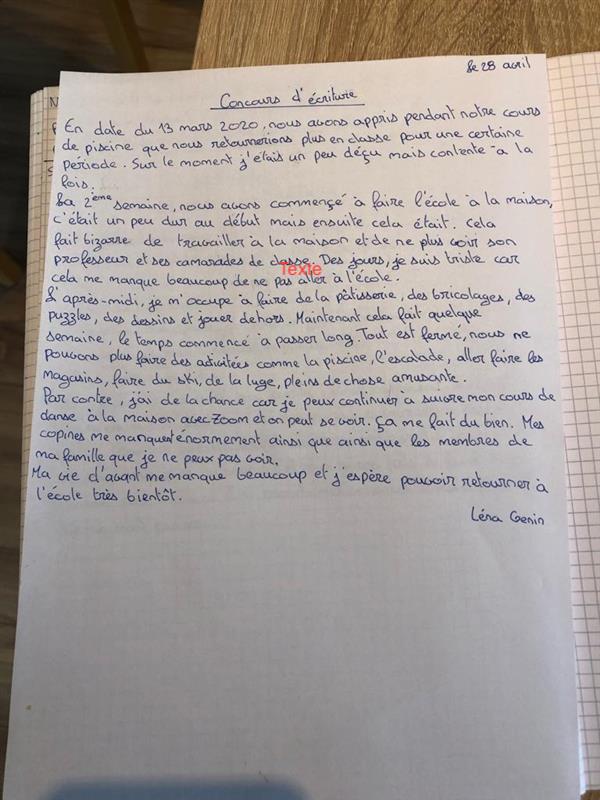 Le 28 avril
Concours d'écriture
En date du 13 mars 2020, nous avons appris pendant notre cours
de piscine que nous retournerions plus en classe pour une certaine
période. Sur le moment j'étais un peu déçu mais contente à la
fois.
La 2ème semaine, nous avons commençé à faire l'école à la maison,
c'était un peu dur au début mais ensuite cela était. Cela
fait bizarre de travailler à la maison et de ne plus voir son
professeur et ses camarades de classe. Des jours, je suis triste car
Texte
cela me manque beaucoup de ne pas aller à l'école.
L'après-midi, je m'occupe à faire de la pâtisserie, des bricolages, des
puzzles, des dessins et jouer dehors. Maintenant cela fait quelque
semaine, le temps commencé à passer long. Tout est fermé, nous ne
pouvons plus faire des activitées comme la piscine, l'escalade, aller faire les
magasins, faire du ski, de la luge, pleins de chose amusante.
Par contre, j'ai de la chance car je peux continuer à suivre mon cours de
danse à la maison avec Zoom et on peut se voir. Ça me fait du bien. Mes
copines me manquent énormement ainsi que ainsi que les membres de
ma famille que je ne peux pas voir.
Ma vie d'avant me manque beaucoup et j'espère pouvoir retourner à
l'école très bientôt.
Léna Genin